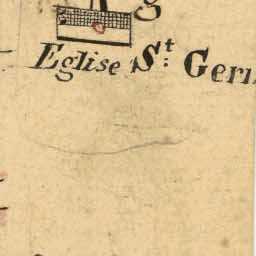 g
Eglise St: Ger